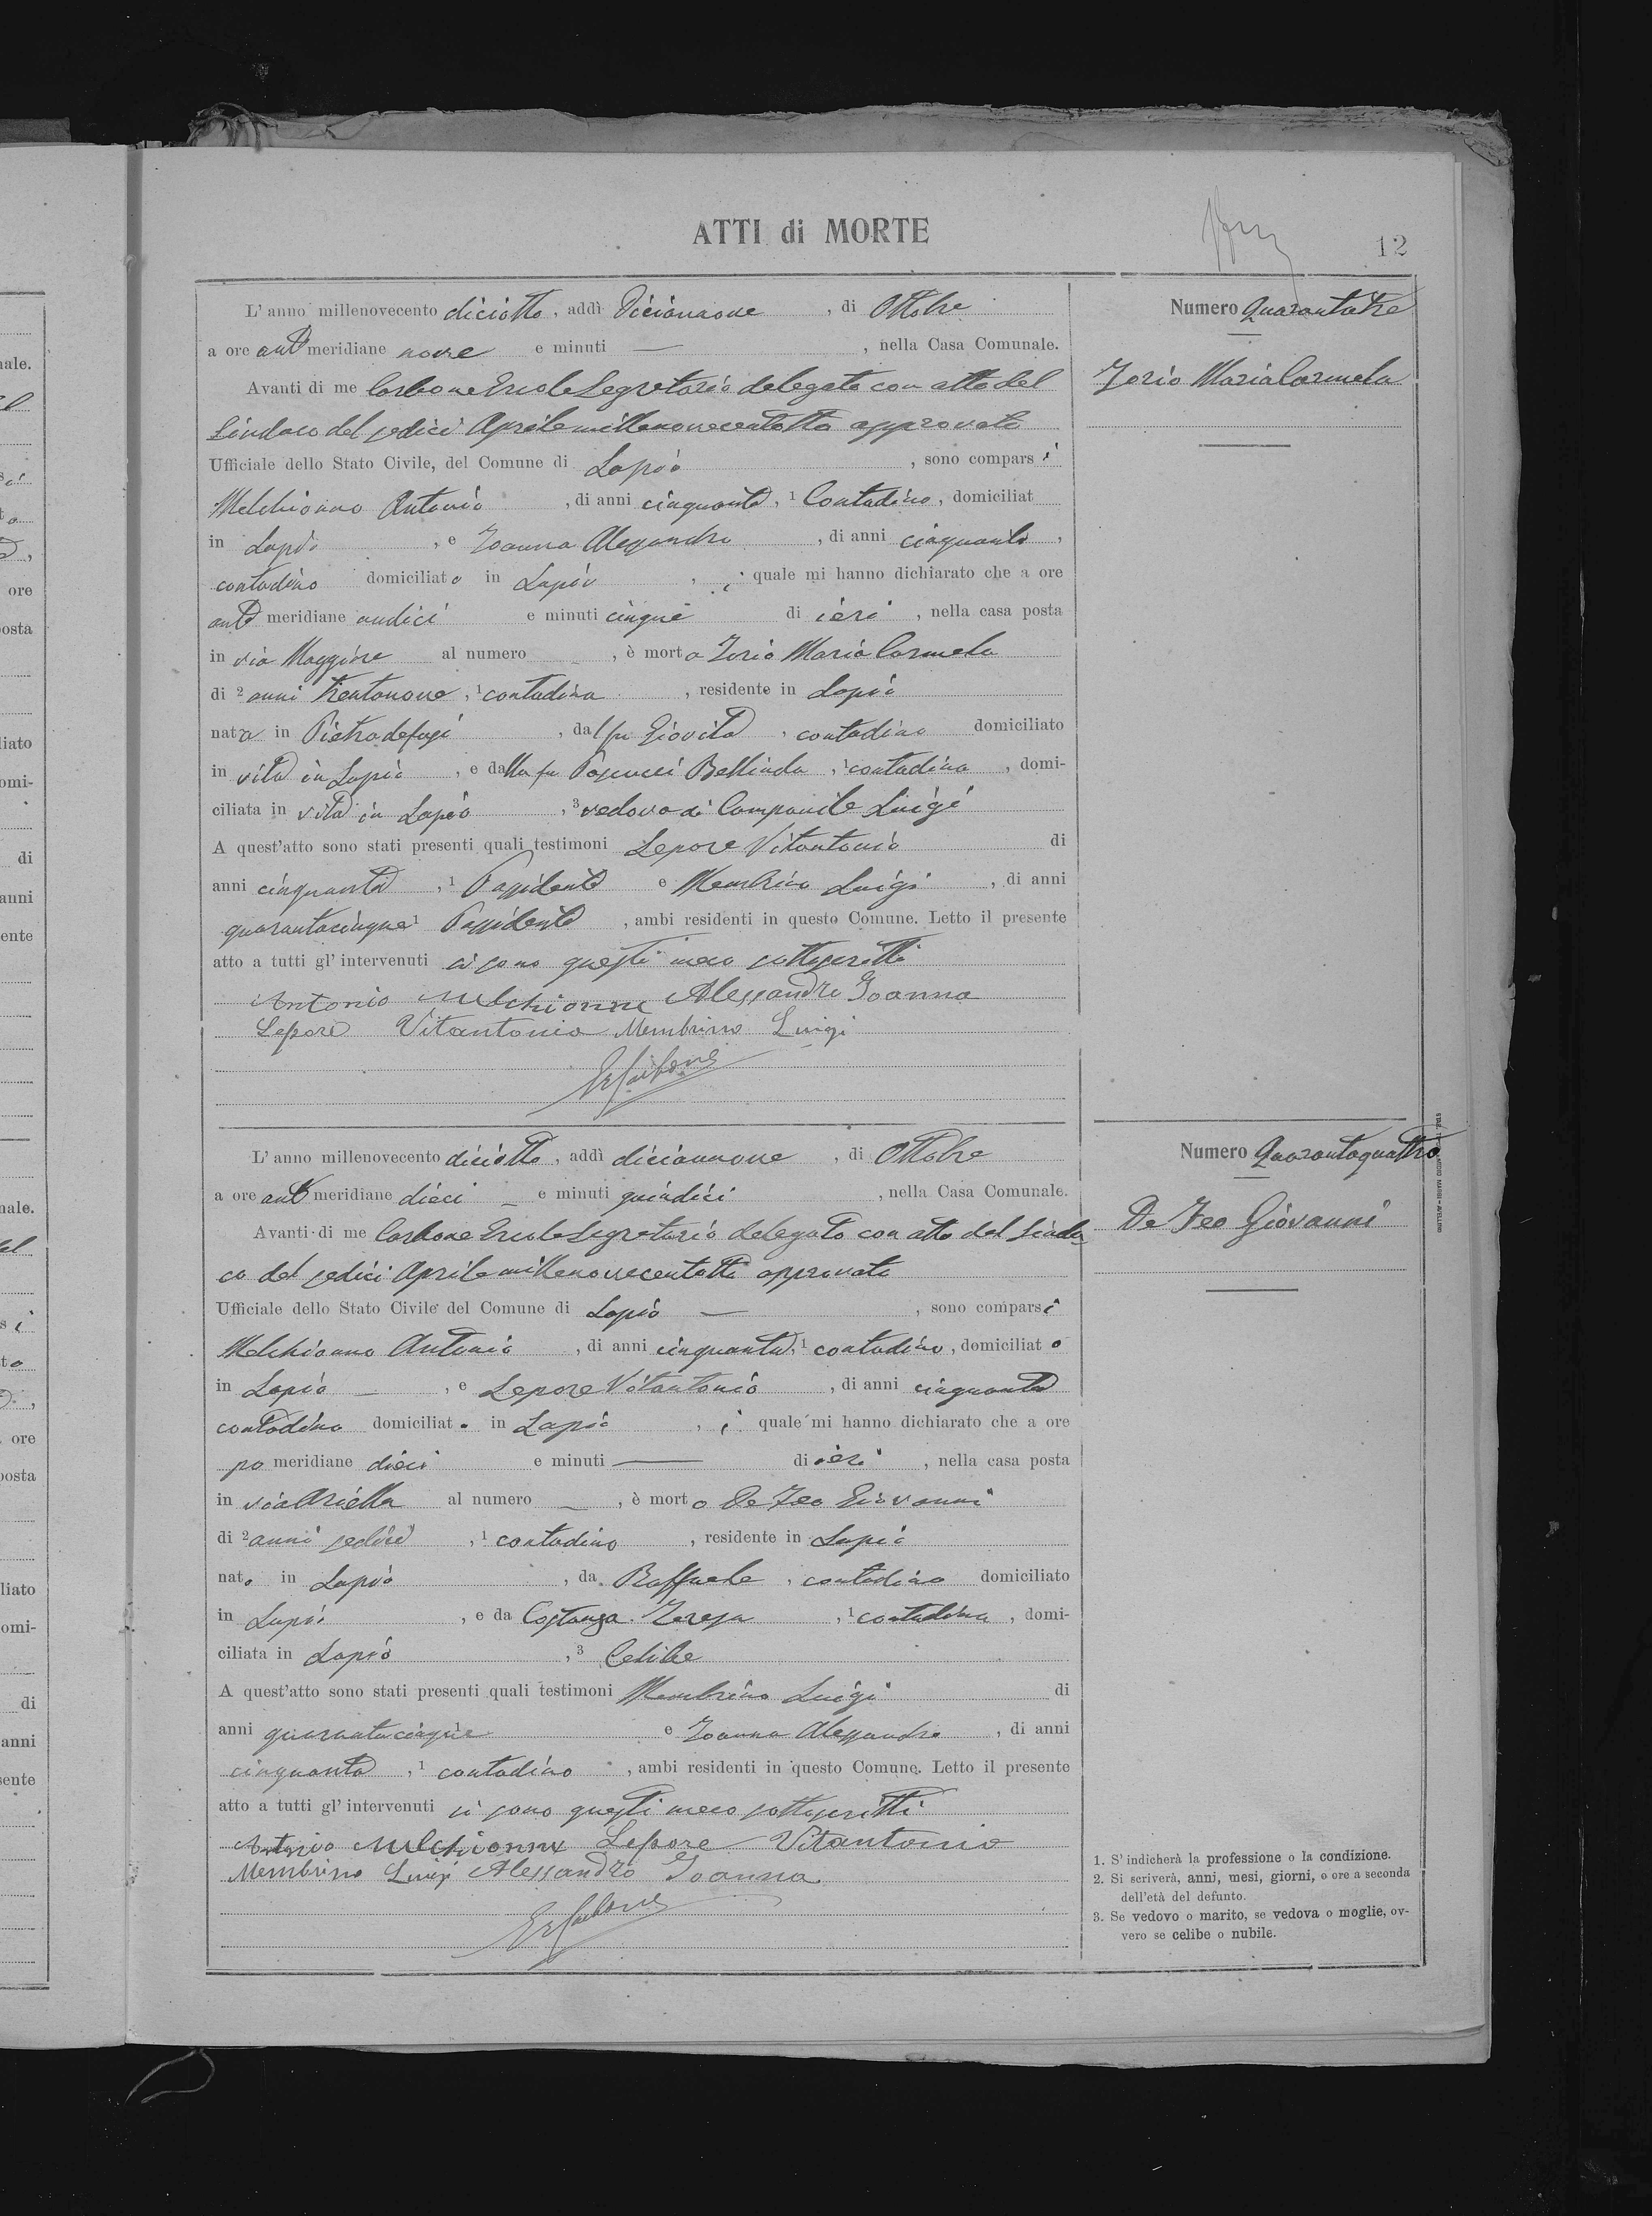 ATTI di MORTE
12
L'anno millenovecento diciotto, addì Diciannove, di Ottobre
a ore ant meridiane nove e minuti —, nella Casa Comunale.
Avanti di me Carbone Ercole Segretario delegato con atto del
Sindaco del sedici Aprile millenovecentotto approvato
Ufficiale dello Stato Civile, del Comune di Lapio, sono comparsi
Melchionno Antonio, di anni cinquanta, 1 Contadino, domiciliat
in Lapio, e Joanna Alessandro, di anni cinquanta,
contadino domiciliato in Lapio, i quale mi hanno dichiarato che a ore
ant meridiane undici e minuti cinque di ieri, nella casa posta
in via Maggiore al numero —, è morta Iorio Maria Carmela
di 2 anni trentanove, 1 contadina, residente in Lapio
nata in Pietradefusi, dal fu Giovita, contadino domiciliato
in vita in Lapio, e dalla fu Pascucci Bellinda, 1 contadina, domi-
ciliata in vita in Lapio, 3 vedova di Campanile Luigi
A quest'atto sono stati presenti quali testimoni Lepore Vitantonio di
anni cinquanta, 1 Possidente e Membrino Luigi, di anni
quarantacinque 1 Possidente, ambi residenti in questo Comune. Letto il presente
atto a tutti gl'intervenuti si sono questi meco sottoscritti
Antonio Melchionne Alessandro Joanna
Lepore Vitantonio Membrino Luigi
Er Carbone
Numero Quarantatre
Iorio Maria Carmela
L'anno millenovecento diciotto, addì diciannove, di Ottobre
a ore ant meridiane dieci — e minuti quindici, nella Casa Comunale.
Avanti di me Carbone Ercole Segretario delegato con atto del Sinda
co del sedici Aprile millenovecentotto approvato
Ufficiale dello Stato Civile del Comune di Lapio —, sono comparsi
Melchionno Antonio, di anni cinquanta, 1 contadino, domiciliato
in Lapio —, e Lepore Vitantonio, di anni cinquanta
contadino domiciliato in Lapio, i quale mi hanno dichiarato che a ore
po meridiane dieci e minuti — di ieri, nella casa posta
in via Ariella al numero —, è morto De Feo Giovanni
di 2 anni sedici, 1 contadino, residente in Lapio
nato in Lapio, da Raffaele, contadino domiciliato
in Lapio, e da Costanza Teresa, 1 contadina, domi-
ciliata in Lapio, 3 Celibe
A quest'atto sono stati presenti quali testimoni Membrino Luigi di
anni quarantacinque e Joanna Alessandro, di anni
cinquanta, 1 contadino, ambi residenti in questo Comune. Letto il presente
atto a tutti gl'intervenuti si sono questi meco sottoscritti
Antonio Melchionne Lepore Vitantonio
Membrino Luigi Alessandro Joanna
Er Carbone
Numero Quarantaquattro
De Feo Giovanni
1. S'indicherà la professione o la condizione.
2. Si scriverà, anni, mesi, giorni, o ore a seconda
dell'età del defunto.
3. Se vedovo o marito, se vedova o moglie, ov-
vero se celibe o nubile.